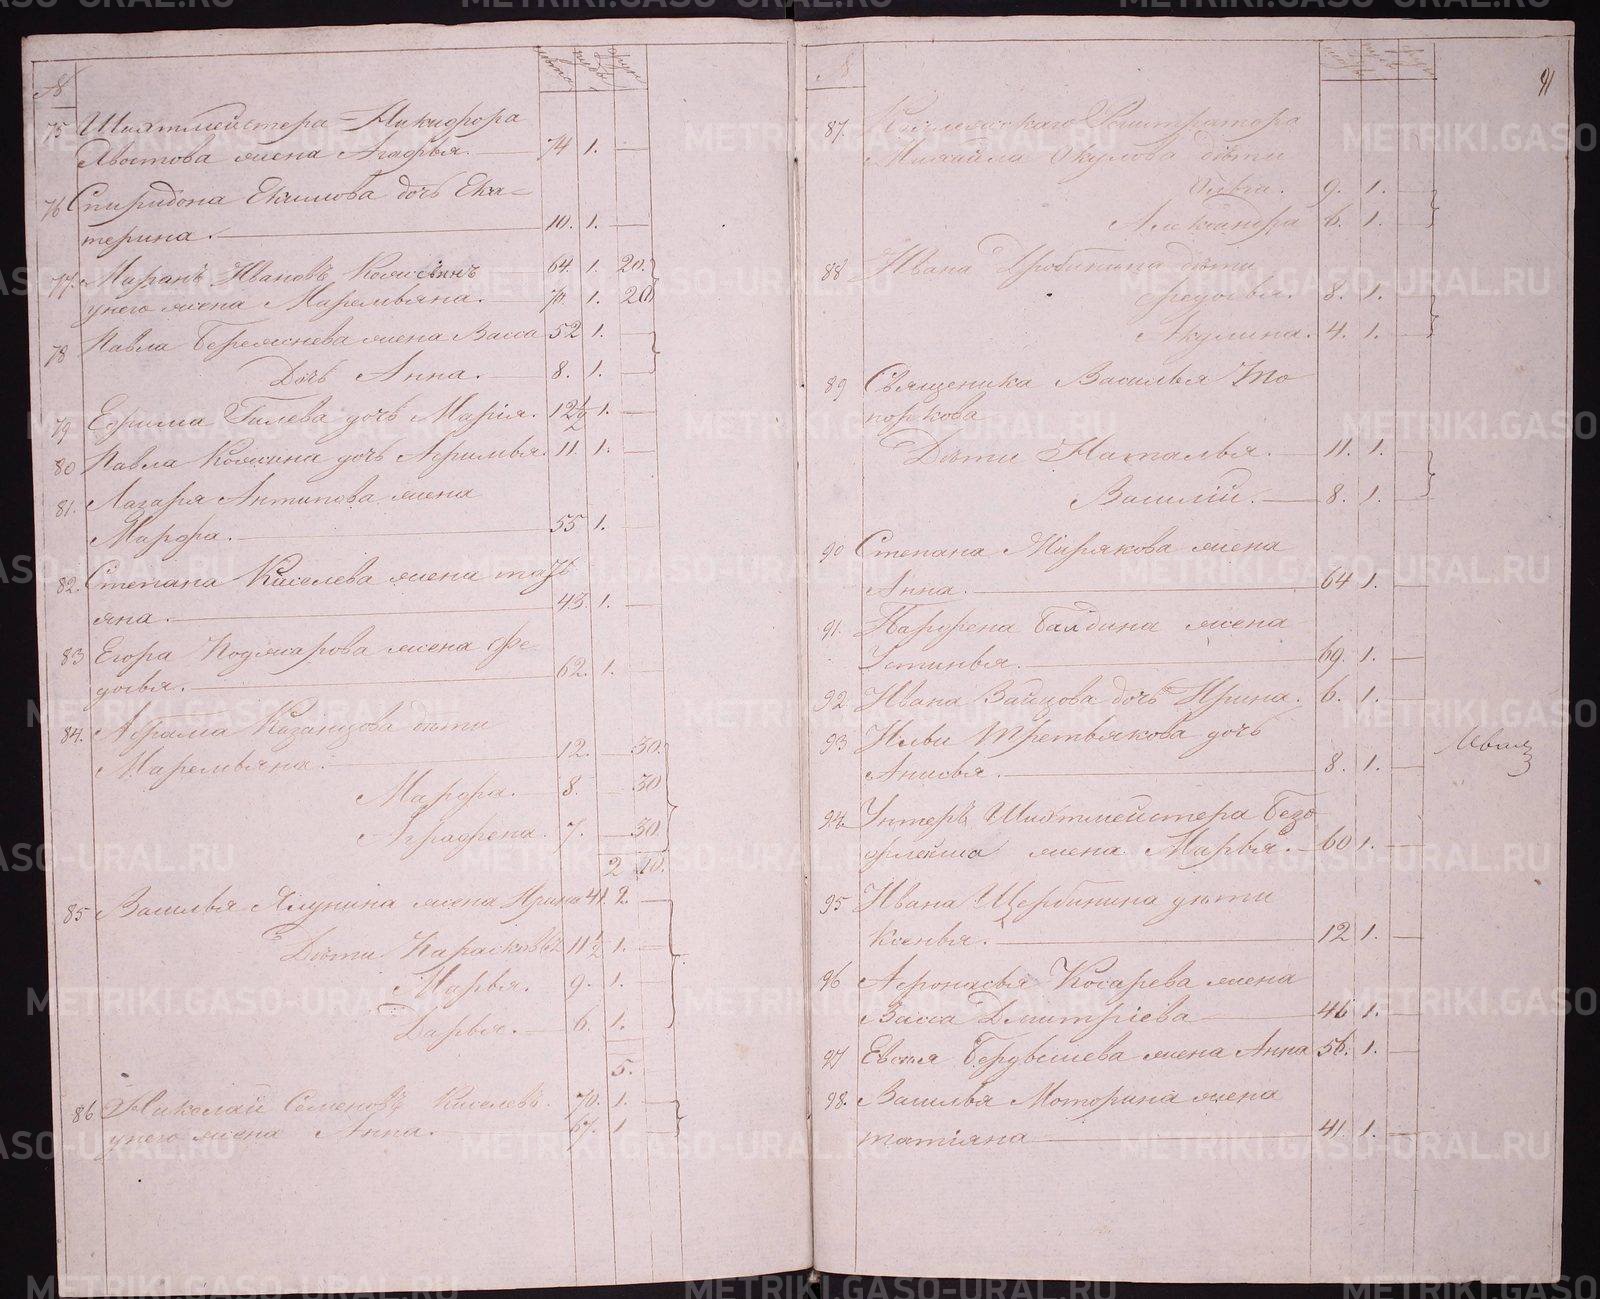 № лета пуды фун
75 Шихтмейстера Никифора
Хвостова жена Агафья. 74 1.
76 Спиридона Екимова дочь Ека=
терина. 10. 1.
77. Марко Ивановъ 64. 1. 20.
у него жена Маремьяна. 1. 20
78 Павла Бережнева жена Васса 52 1.
Дочь Анна. 8. 1.
79 Ефима Гилева дочь Марія. 12½ 1.
80 Павла Кожина дочь Агрипья. 11. 1.
81. Лазаря Антипова жена
Марфа. 55 1.
82. Степана Киселева жена тать
яна. 43. 1.
83 Егора Поджарова жена Фе
досья. 62. 1.
84. Абрама Казанцова дети
Маремьяна. 12. 30.
Марфа. 8. 30
Аграфена. 7. 30.
2 10.
85 Василья Ялунина жена Ирина 41. 2.
Дети Парасковья 11½ 1.
Марья. 9. 1.
Дарья. 6. 1.
5.
86 Николай Семеновъ Киселевъ. 70. 1.
у него жена Анна. 67. 1
91
№
87. Регистратора
Михайла Окулова дети
Ольга. 9. 1.
Александра 6. 1.
88 Ивана Дробинина дети
Федосья. 8. 1.
Акулина. 4. 1.
89 Священика Василья То
поркова
Дети Наталья. 11. 1.
Василій. 8. 1.
90 Степана Мирякова жена
Анна. 64 1.
91. Парфена Балдина жена
Устинья. 69. 1.
92 Ивана Зайцова дочь Ирина. 6. 1.
93 Ильи Третьякова дочь
Анисья. 8. 1.
94. Унтеръ Шихтмейстера Без
жена Марья. 60 1.
95 Ивана Щербинина дети
Ксенья. 12 1.
96 Афонасья Косарева жена
Васса Дмитріева 46 1.
97 Бердышева жена Анна 56. 1.
98. Василья Моторина жена
татіяна 41. 1.
METRIKI.GASO-URAL.RU